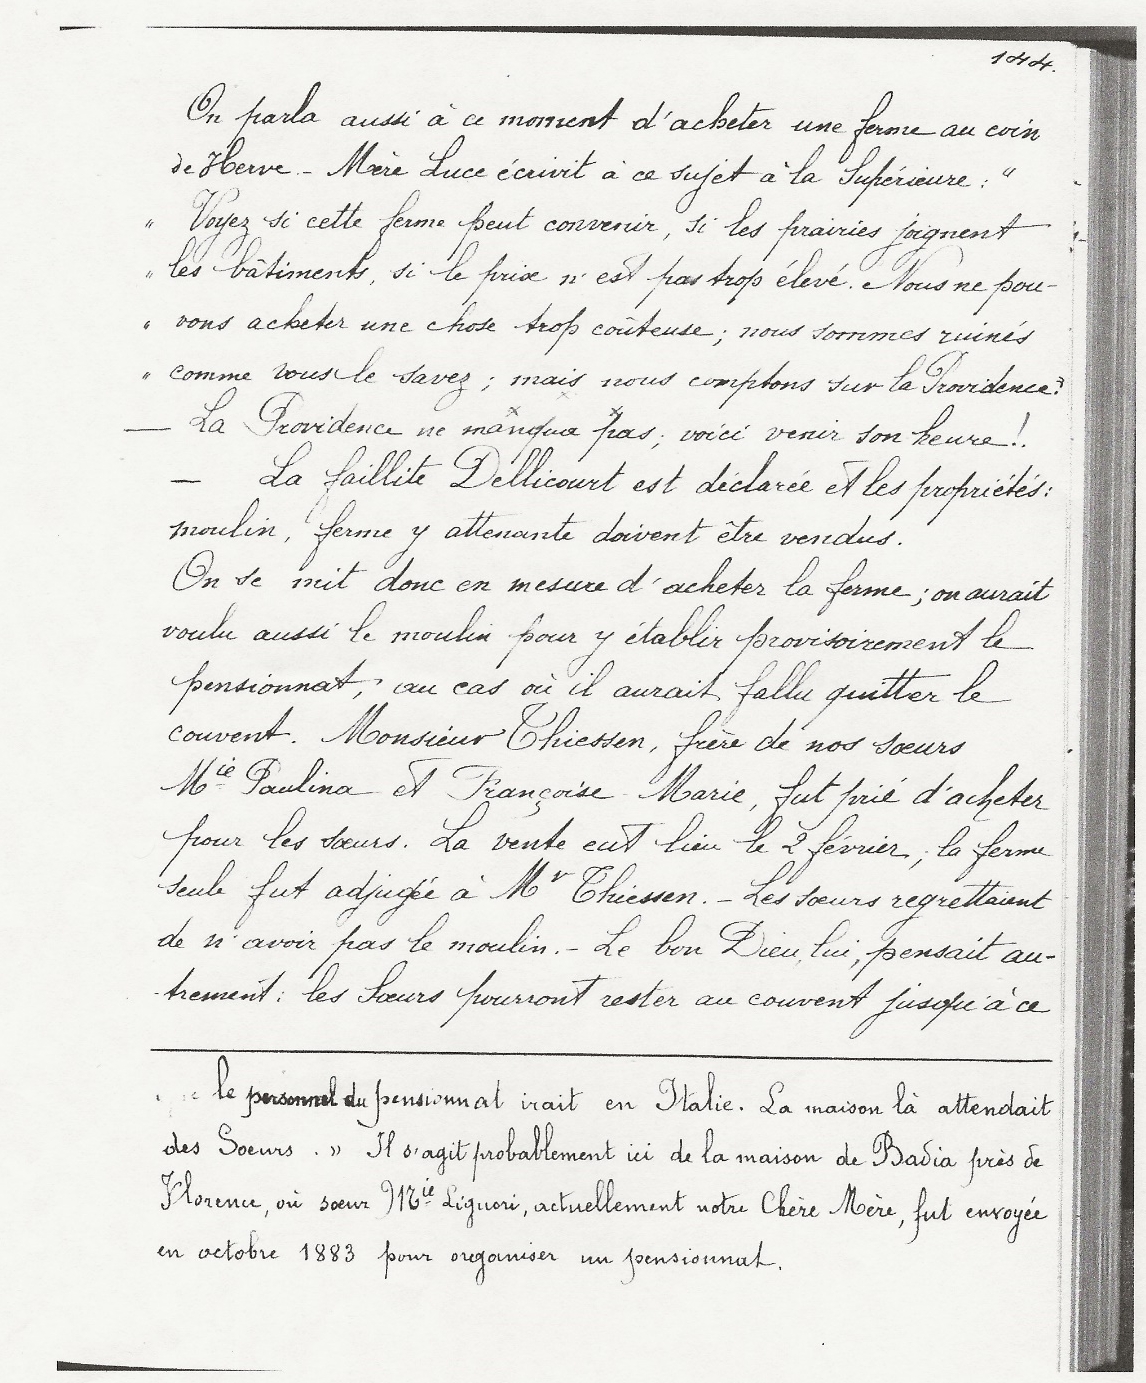 144.
On parla aussi à ce moment d'acheter une ferme au coin
de Herve. - Mère Luce écrivit à ce sujet à la Supérieure : "
" Voyez si cette ferme peut convenir, si les prairies joignent
" les bâtiments, si le prix n'est pas trop élevé. Nous ne pou-
" vons acheter une chose trop coûteuse ; nous sommes ruinés
" comme vous le savez ; mais nous comptons sur la Providence"
— La Providence ne manqua pas ; voici venir son heure !.
— La faillite Dellicourt est déclarée et les propriétés :
moulin, ferme y attenante doivent être vendus.
On se mit donc en mesure d'acheter la ferme ; on aurait
voulu aussi le moulin pour y établir provisoirement le
pensionnat, au cas où il aurait fallu quitter le
couvent. Monsieur Thiessen, frère de nos sœurs
Mie Paulina et Françoise Marie, fut prié d'acheter
pour les sœurs. La vente eut lieu le 2 février ; la ferme
seule fut adjugée à Mr Thiessen. - Les sœurs regrettaient
de n'avoir pas le moulin. - Le bon Dieu, lui, pensait au-
trement : les Sœurs pourront rester au couvent jusqu'à ce
le personnel du pensionnat irait en Italie. La maison là attendait
des Soeurs . » Il s'agit probablement ici de la maison de Badia près de
Florence, où sœur Mie Liguori, actuellement notre Chère Mère, fut envoyée
en octobre 1883 pour organiser un pensionnat.